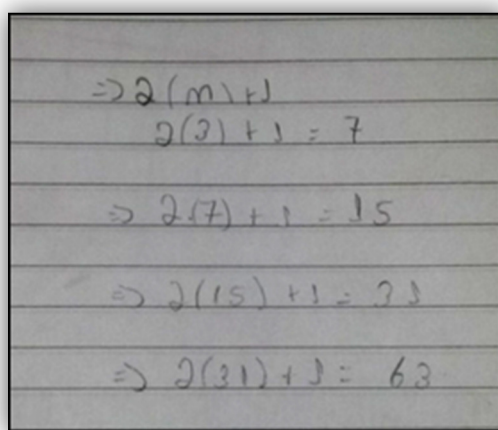 => 2(n)+1
2(3) + 1 = 7
=> 2(7) + 1 = 15
=> 2(15) + 1 = 31
=> 2(31) + 1 = 63